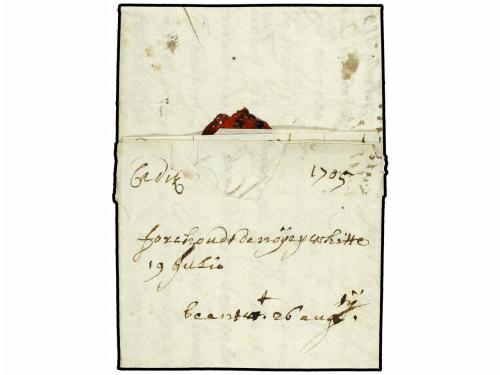 Cadix 1705
forchoudt de noÿe ÿ whitte
19 Julio
beantw. 26 aug.